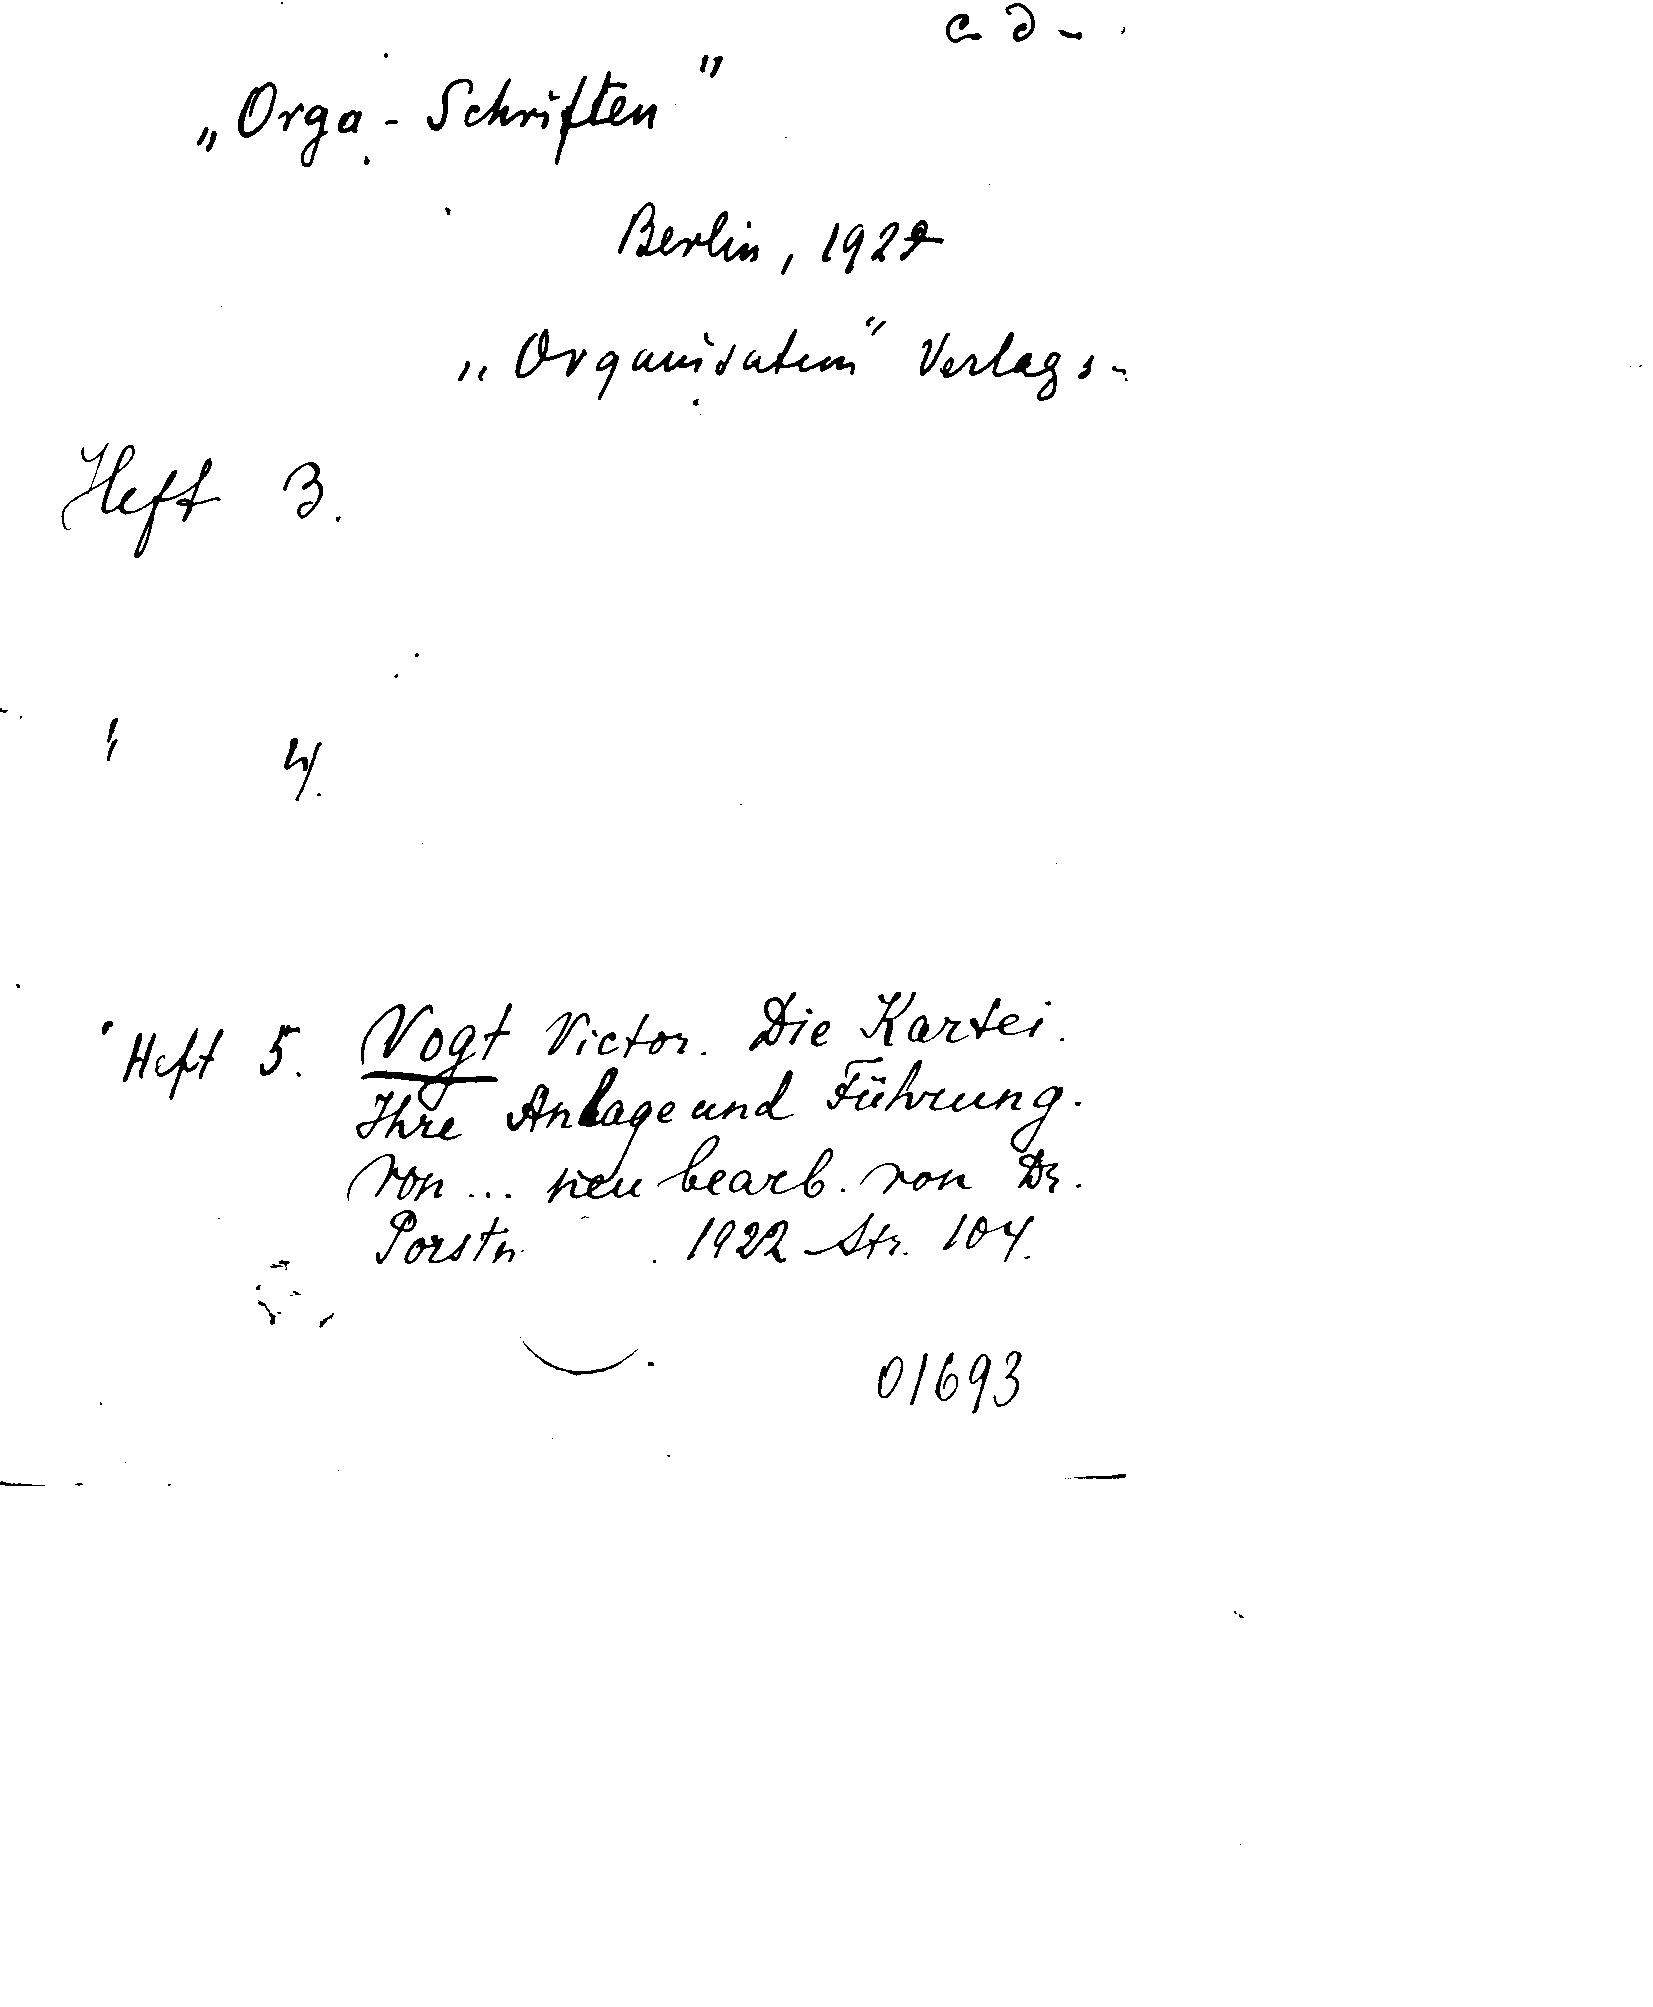 c. d -
„Orga - Schriften"
Berlin, 1922
„Organisation" Verlags-
Heft 3.
" 4.
Heft 5. Vogt Victor. Die Kartei.
Ihre Anlage und Führung.
von ... neu bearb. von Dr.
Porstm 1922 Str. 104.
01693